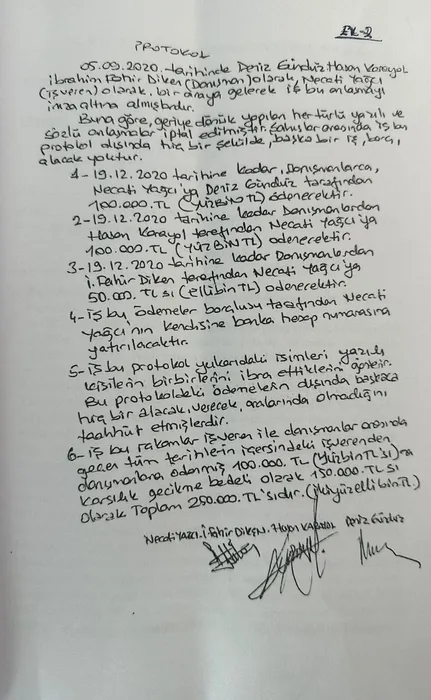 EK-2
PROTOKOL
05.09.2020 tarihinde Deniz Gündüz Hasan Karayol
İbrahim Fahir Diken (Danışman) olarak, Necati Yağcı
(işveren) olarak, bir araya gelerek iş bu anlaşmayı
imza altına almışlardır.
Buna göre, geriye dönük yapılan her türlü yazılı ve
sözlü anlaşmalar iptal edilmiştir. Şahıslar arasında iş bu
protokol dışında hiç bir şekilde, başka bir iş, borç,
alacak yoktur.
1-19.12.2020 tarihine kadar, Danışmanlarca,
Necati Yağcı'ya Deniz Gündüz tarafından
100.000.TL (YÜZBİN TL) ödenecektir.
2-19.12.2020 tarihine kadar Danışmanlardan
Hasan Karayol tarafından Necati Yağcı'ya
100.000.TL (YÜZ BİN TL) ödenecektir.
3-19.12.2020 tarihine kadar Danışmanlardan
İ. Fahir Diken tarafından Necati Yağcı'ya
50.000.TL sı (ellibin TL) ödenecektir.
4-iş bu ödemeler borçlusu tarafından Necati
Yağcı'nın kendisine banka hesap numarasına
yatırılacaktır.
5-iş bu protokol yukarıdaki isimleri yazılı
kişilerin birbirlerini ibra ettiklerini gösterir.
Bu protokoldeki ödemelerin dışında başkaca
hiç bir alacak, verecek, aralarında olmadığını
taahhüt etmişlerdir.
6-iş bu rakamlar işveren ile danışmanlar arasında
geçen tüm tarihlerin içersindeki işverenden
danışmanlara ödenmiş 100.000.TL (Yüzbin TL'sı)na
karşılık gecikme bedeli olarak 150.000.TL sı
olarak Toplam 250.000.TL'sıdır. (ikiyüzellibin TL)
Necati YAĞCI. İ. Fahir DİKEN. Hasan KARAYOL Deniz Gündüz